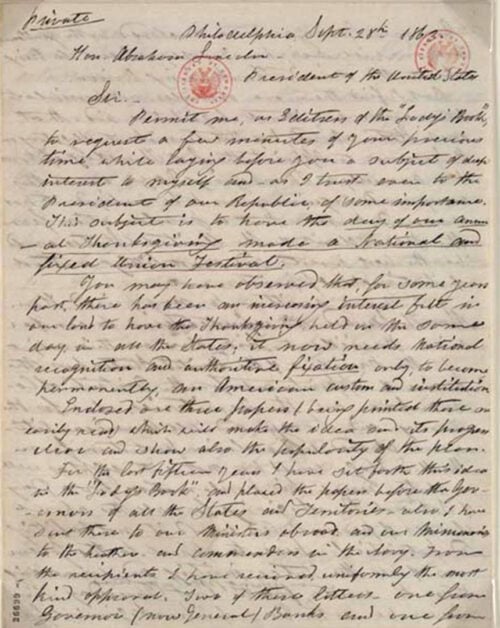 Private
Philadelphia Sept. 28th 1863.
Hon. Abraham Lincoln -
President of the United States
Sir.-
Permit me, as Editress of the "Lady's Book",
to request a few minutes of your precious
time, while laying before you a subject of deep
interest to myself and as I trust even to the
President of our Republic, of some importance.
This subject is to have the day of our annu-
al Thanksgiving made a National and
fixed Union Festival.
You may have observed that, for some years
past, there has been an increasing interest felt in
our land to have the Thanksgiving held on the same
day, in all the States; it now needs National
recognition and authoritive fixation, only, to become
permanently, an American custom and institution.
Enclosed are three papers (being printed these are
easily read) which will make the idea and its progress
clear and show also the popularity of the plan.
For the last fifteen years I have set forth this idea
in the "Lady's Book", and placed the papers before the Gov-
ernors of all the States and Territories - also I have
sent these to our Ministers abroad, and our Missionaries
to the heathen - and commanders in the Navy. From
the recipients I have received, uniformly the most
kind approval. Two of these letters, one from
Governor (now General) Banks and one from
26699